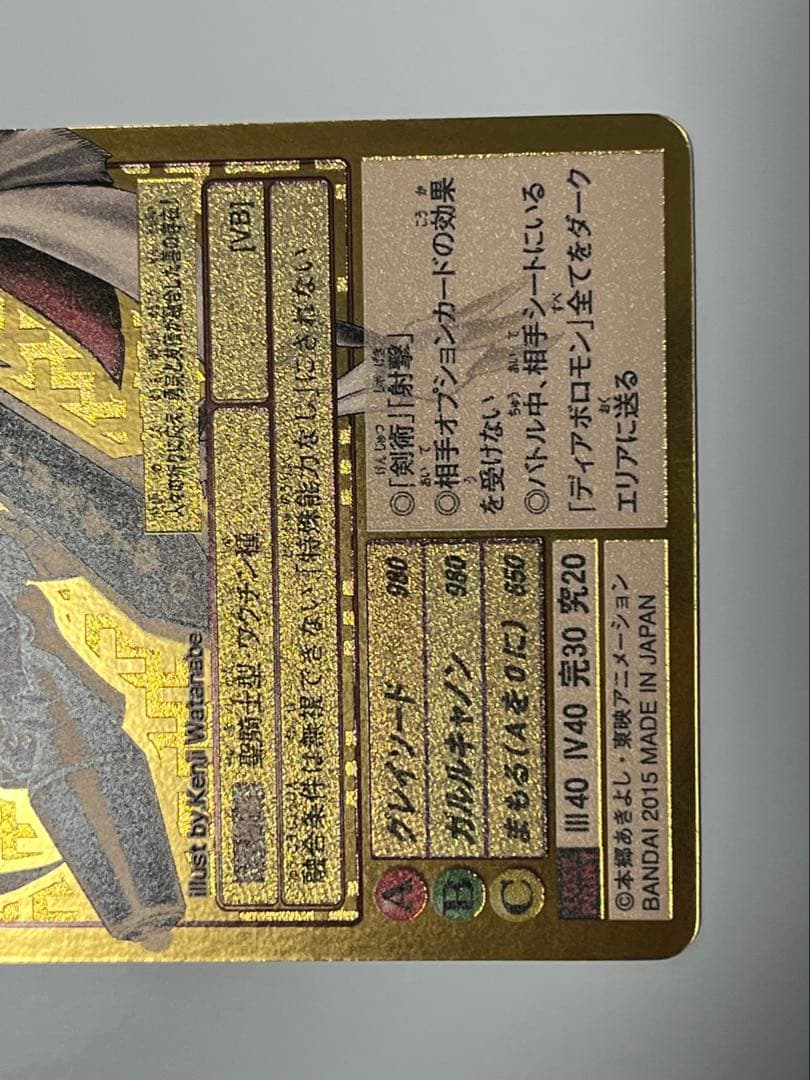 人々の祈りに応え、勇気と友情が融合した善の存在!
illust by.Kenji Watanabe
聖騎士型 ワクチン種 [VB]
融合条件は無視できない「特殊能力なし」にされない
A グレイソード 980
B ガルルキャノン 980
C まもる(Aを0に) 650
◎「剣術」「射撃」
◎相手オプションカードの効果
を受けない
◎バトル中、相手シートにいる
「ディアボロモン」全てをダーク
エリアに送る
III40 IV40 完30 究20
©本郷あきよし・東映アニメーション
BANDAI 2015 MADE IN JAPAN